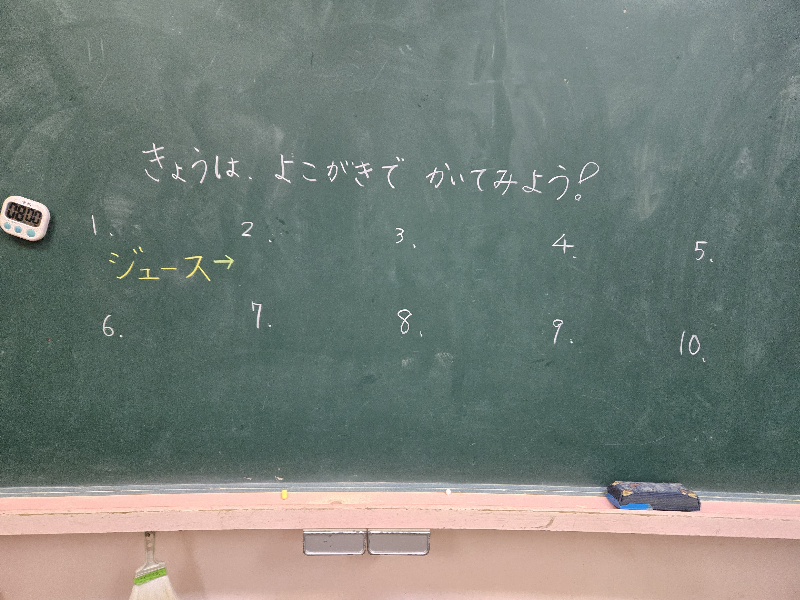 きょうは、よこがきで かいてみよう!
08:00
1. 2. 3. 4. 5.
ジュース→
6. 7. 8. 9. 10.